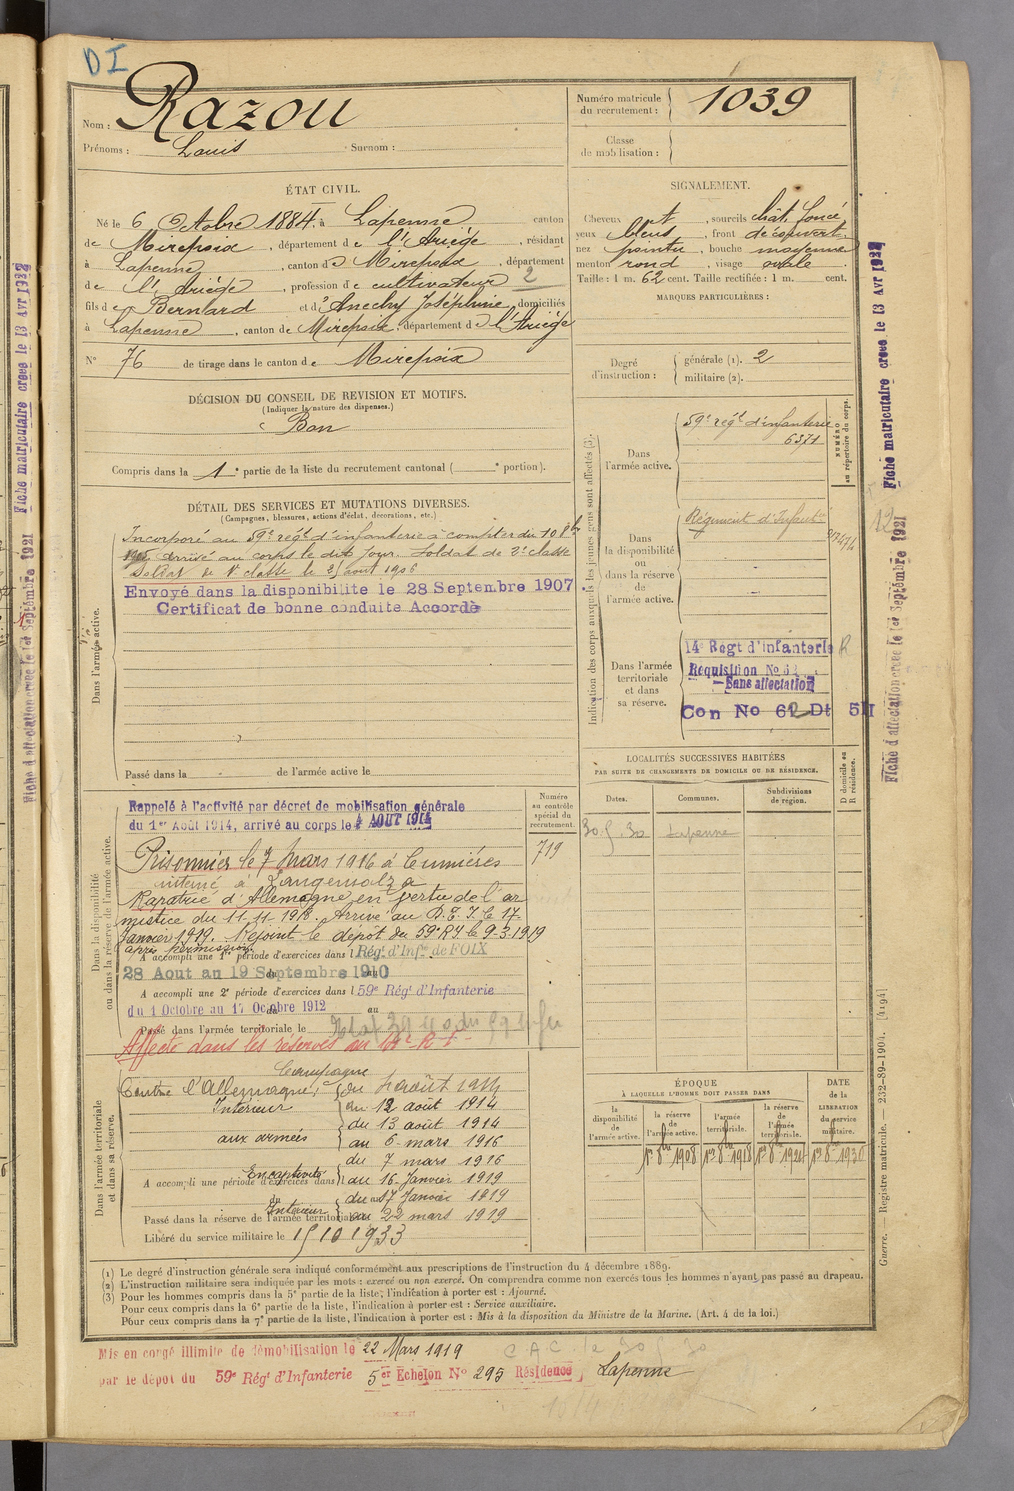 DI
Nom : Razou
Prénoms : Louis Surnom :
Numéro matricule du recrutement : 1039
Classe de mobilisation :
ÉTAT CIVIL.
Né le 6 Octobre 1884, à Lapenne canton
de Mirepoix, département de l'Ariège, résidant
à Lapenne, canton de Mirepoix, département
de l'Ariège, profession de cultivateur 2
fils de Bernard et d'Anechy Joséphine domiciliés
à Lapenne, canton de Mirepoix, département de l'Ariège
N° 76 de tirage dans le canton de Mirepoix
SIGNALEMENT.
Cheveux et, sourcils chât. foncé
yeux bleus, front découvert
nez pointu, bouche moyenne
menton rond, visage ovale
Taille : 1 m. 62 cent. Taille rectifiée : 1 m. cent.
MARQUES PARTICULIÈRES :
Degré d'instruction : générale (1). 2
militaire (2).
DÉCISION DU CONSEIL DE REVISION ET MOTIFS.
(Indiquer la nature des dispenses.)
Bon
Compris dans la 1e partie de la liste du recrutement cantonal ( e portion).
DÉTAIL DES SERVICES ET MUTATIONS DIVERSES.
(Campagnes, blessures, actions d'éclat, décorations, etc.)
Dans l'armée active.
Incorporé au 59e régt d'infanterie à compter du 10 8bre
1905, arrivé au corps le dit jour. Soldat de 2e classe
Soldat de 1e classe le 25 août 1906
Envoyé dans la disponibilité le 28 Septembre 1907.
Certificat de bonne conduite Accordé
Passé dans la de l'armée active le
Indication des corps auxquels les jeunes gens sont affectés (3).
NUMÉRO au répertoire du corps.
Dans l'armée active.
59e régt d'infanterie
6371
Dans la disponibilité ou dans la réserve de l'armée active.
Régiment d'Infant
Dans l'armée territoriale et dans sa réserve.
14e Régt d'Infanterie R
Réquisition No 62
Sans affectation
Con No 62 Dt 5H
LOCALITÉS SUCCESSIVES HABITÉES
PAR SUITE DE CHANGEMENTS DE DOMICILE OU DE RÉSIDENCE.
Dates. Communes. Subdivisions de région. D domicile ou R résidence.
30.5.30 Lapenne
Numéro au contrôle spécial du recrutement.
719
Dans la disponibilité ou dans la réserve de l'armée active.
Rappelé à l'activité par décret de mobilisation générale
du 1er Août 1914, arrivé au corps le 4 AOUT 1914
Prisonnier le 7 mars 1916 à Cumières
interné à Langensalza
Rapatrié d'Allemagne en vertu de l'ar
mistice du 11-11-1918. Arrivé au D.T.I. le 17
Janvier 1919. Rejoint le dépôt du 59e RI le 9-3-1919
après permission
A accompli une 1e période d'exercices dans l Rég. d'Infie de FOIX
28 Aout au 19 Septembre 1910
A accompli une 2e période d'exercices dans l 59e Régt d'Infanterie
du 1 Octobre au 17 Octobre 1912
Passé dans l'armée territoriale le
Affecté dans les réserves au
Dans l'armée territoriale et dans sa réserve.
Campagne
Contre l'Allemagne : du 4 août 1914
Intérieur au 12 août 1914
du 13 août 1914
aux armées au 6 mars 1916
du 7 mars 1916
En captivité au 16 Janvier 1919
A accompli une période d'exercices dans
du 17 Janvier 1919
Intérieur au 22 mars 1919
Passé dans la réserve de l'armée territoriale
Libéré du service militaire le 15 10 1933
ÉPOQUE
À LAQUELLE L'HOMME DOIT PASSER DANS
la disponibilité de l'armée active.
la réserve de l'armée active.
l'armée territoriale.
la réserve de l'armée territoriale.
DATE de la LIBÉRATION du service militaire.
1er 8bre 1908 1er 8bre 1918 1er 8bre 1924 1er 8bre 1930
(1) Le degré d'instruction générale sera indiqué conformément aux prescriptions de l'instruction du 4 décembre 1889.
(2) L'instruction militaire sera indiquée par les mots : exercé ou non exercé. On comprendra comme non exercés tous les hommes n'ayant pas passé au drapeau.
(3) Pour les hommes compris dans la 5e partie de la liste, l'indication à porter est : Ajourné.
Pour ceux compris dans la 6e partie de la liste, l'indication à porter est : Service auxiliaire.
Pour ceux compris dans la 7e partie de la liste, l'indication à porter est : Mis à la disposition du Ministre de la Marine. (Art. 4 de la loi.)
Mis en congé illimité de démobilisation le 22 Mars 1919
par le dépôt du 59e Régt d'Infanterie 5er Echelon No 295 Résidence, Lapenne
C.A.C. le 30 5 30
Guerre. — Registre matricule. — 232-89-1904. [4194]
Fiche matriculaire créée le 13 Avr 1932
Fiche d'affectation créée le 1er Septembre 1921
Fiche matriculaire créée le 13 Avr 1932
12
Fiche d'affectation créée le 1er Septembre 1921